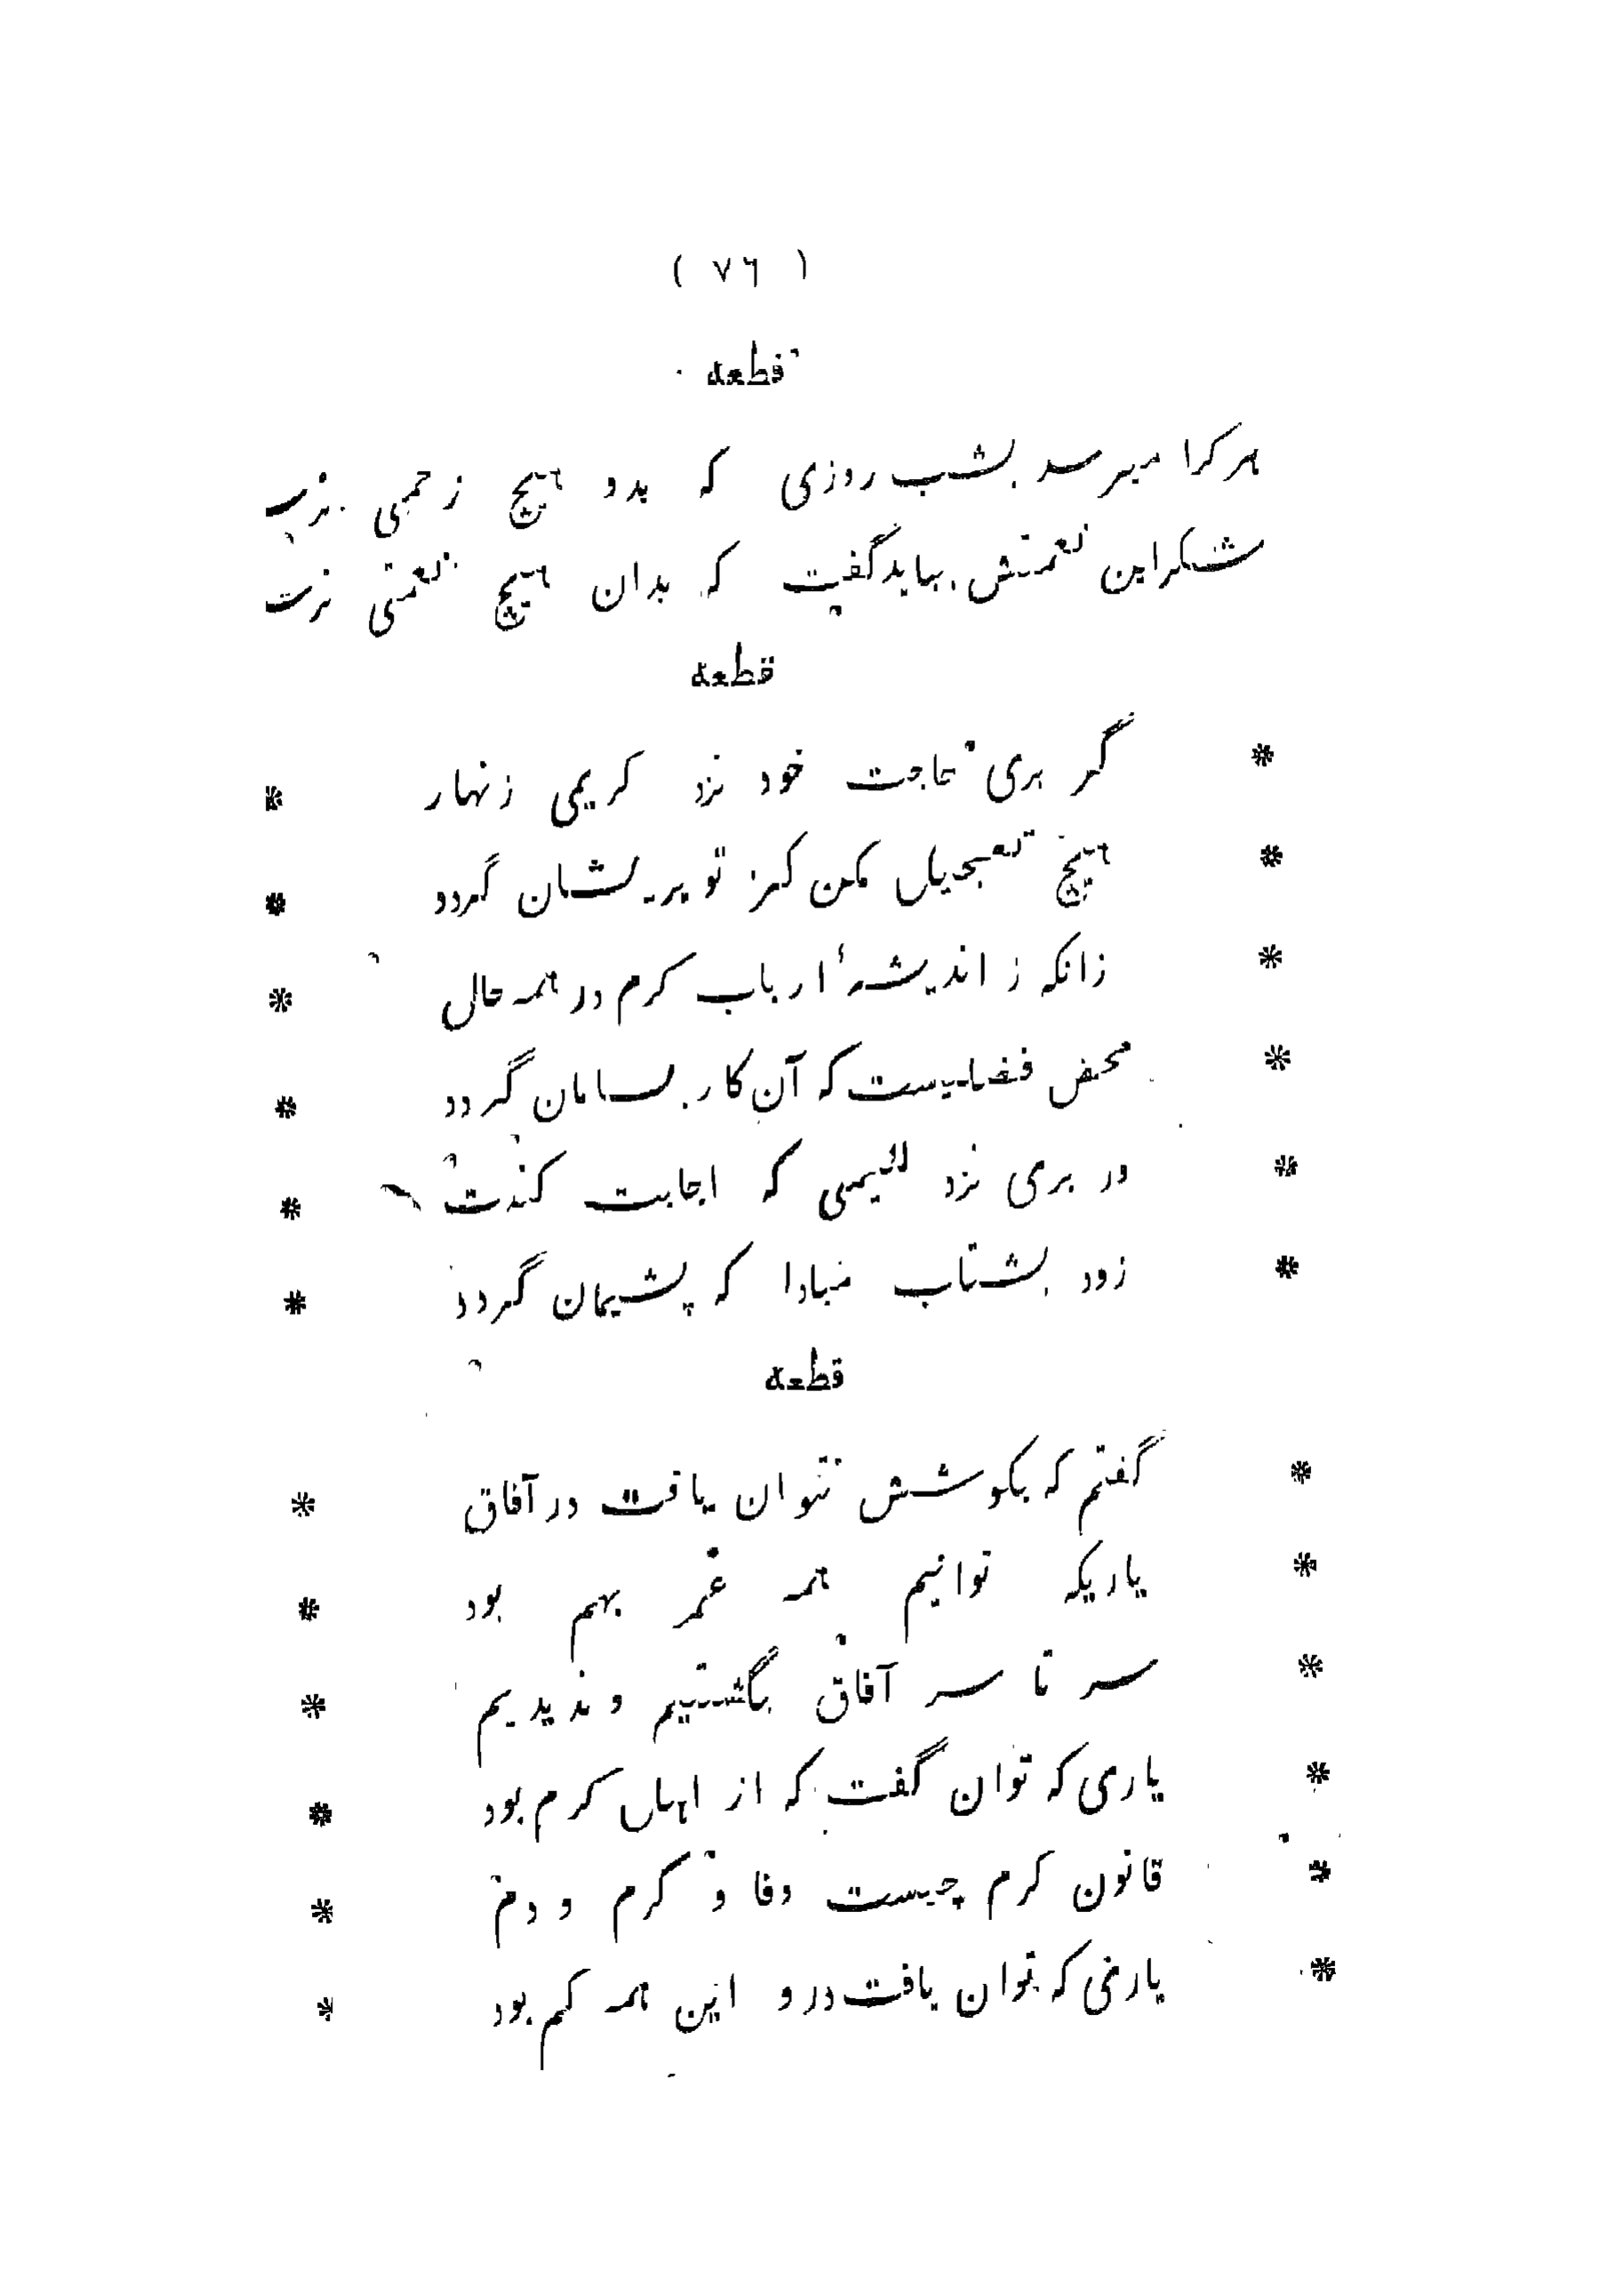 ( ٧٦ )
قطعه
هر کرا میرسد بشب روزی که بدو هیچ زحمی نرسد
شکر این نعمتش بباید گفت که بدان هیچ نعمتی نرسد
قطعه
* گر بری حاجت خود نزد کریمی زنهار *
* هیچ تعجیل مکن کز تو پریشان گردد *
* زانکه ز اندیشهٔ ارباب کرم در همه حال *
* محض فضلیست که آن کار بسامان گردد *
* ور بری نزد لئیمی که اجابت کندت *
* زود بشتاب مبادا که پشیمان گردد *
قطعه
* گفتم که بکوشش نتوان یافت در آفاق *
* یاریکه توانیم همه عمر بهم بود *
* سر تا سر آفاق بگشتیم و ندیدیم *
* یاری که توان گفت که از اهل کرم بود *
* قانون کرم چیست وفا و کرم و دم *
* یاری که توان یافت درو این همه کم بود *